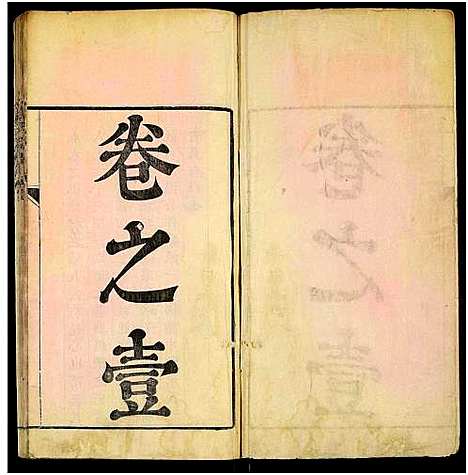 卷之壹